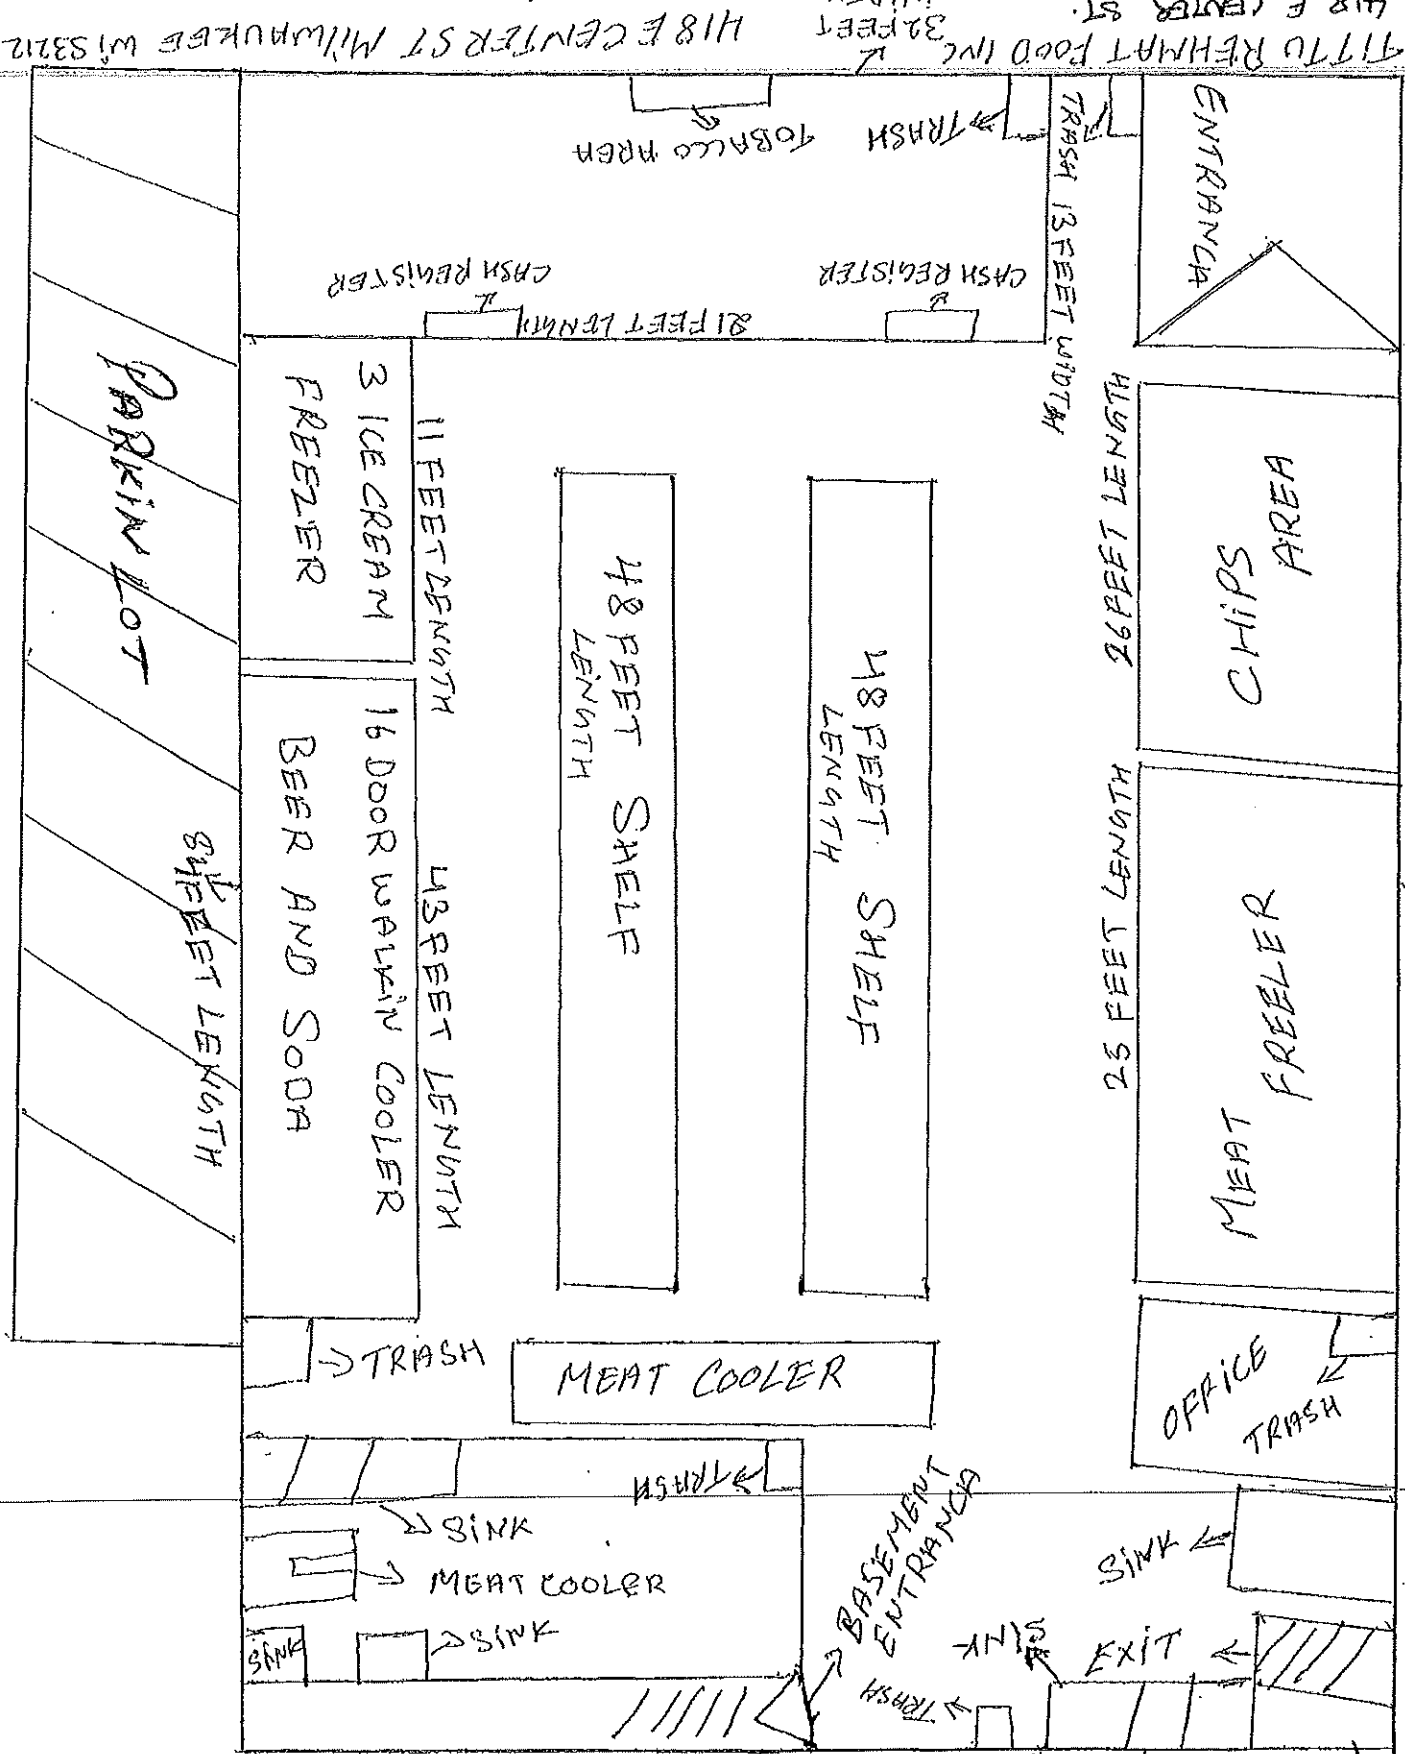 418 E CENTER ST.
TITTU REHMAT FOOD INC
32 FEET
418 E CENTER ST MILWAUKEE Wi 53212
ENTRANCA
TRASH
TRASH
TOBACCO AREA
13 FEET WIDTH
CASH REGISTER
CASH REGISTER
21 FEET LENGTH
PARKIN LOT
84 FEET LENGTH
3 ICE CREAM
FREEZER
11 FEET LENGTH
16 DOOR WALKIN COOLER
BEER AND SODA
43 FEET LENGTH
48 FEET SHELF
LENGTH
48 FEET SHELF
LENGTH
26 FEET LENGTH
CHIPS
AREA
25 FEET LENGTH
MEAT
FREELER
OFFICE
TRASH
TRASH
MEAT COOLER
TRASH
SINK
MEAT COOLER
SINK
SINK
BASEMENT
ENTRANCA
SINK
SINK
EXIT
TRASH